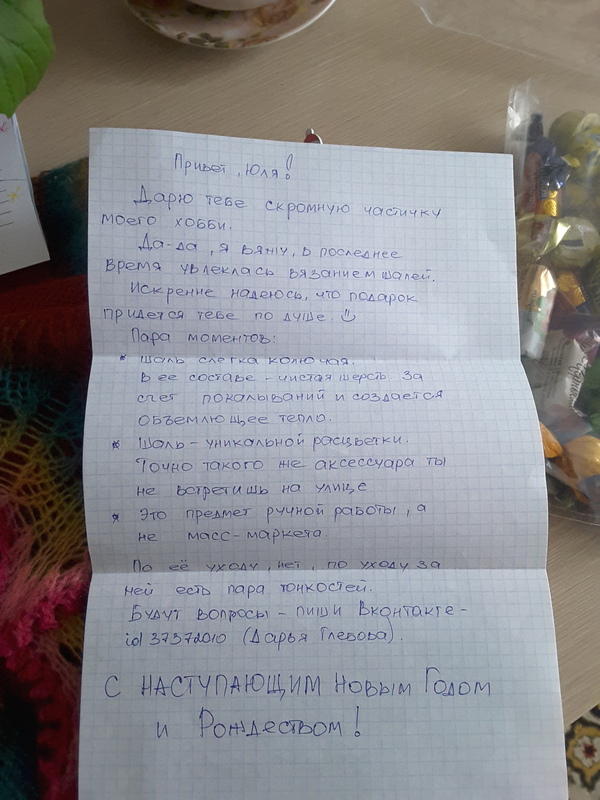 Привет, Юля!
Дарю тебе скромную частичку
моего хобби.
Да-да, я вяжу, в последнее
время увлеклась вязанием шалей.
Искренне надеюсь, что подарок
придется тебе по душе.
Пара моментов:
* Шаль слегка колючая.
В ее составе - чистая шерсть. За
счет покалываний и создается
объемлющее тепло.
* Шаль - уникальной расцветки.
Точно такого же аксессуара ты
не встретишь на улице
* Это предмет ручной работы, а
не масс-маркета.
По её уходу, нет, по уходу за
ней есть пара тонкостей.
Будут вопросы - пиши Вконтакте -
id 37372010 (Дарья Глебова).
С НАСТУПАЮЩИМ Новым Годом
и Рождеством!